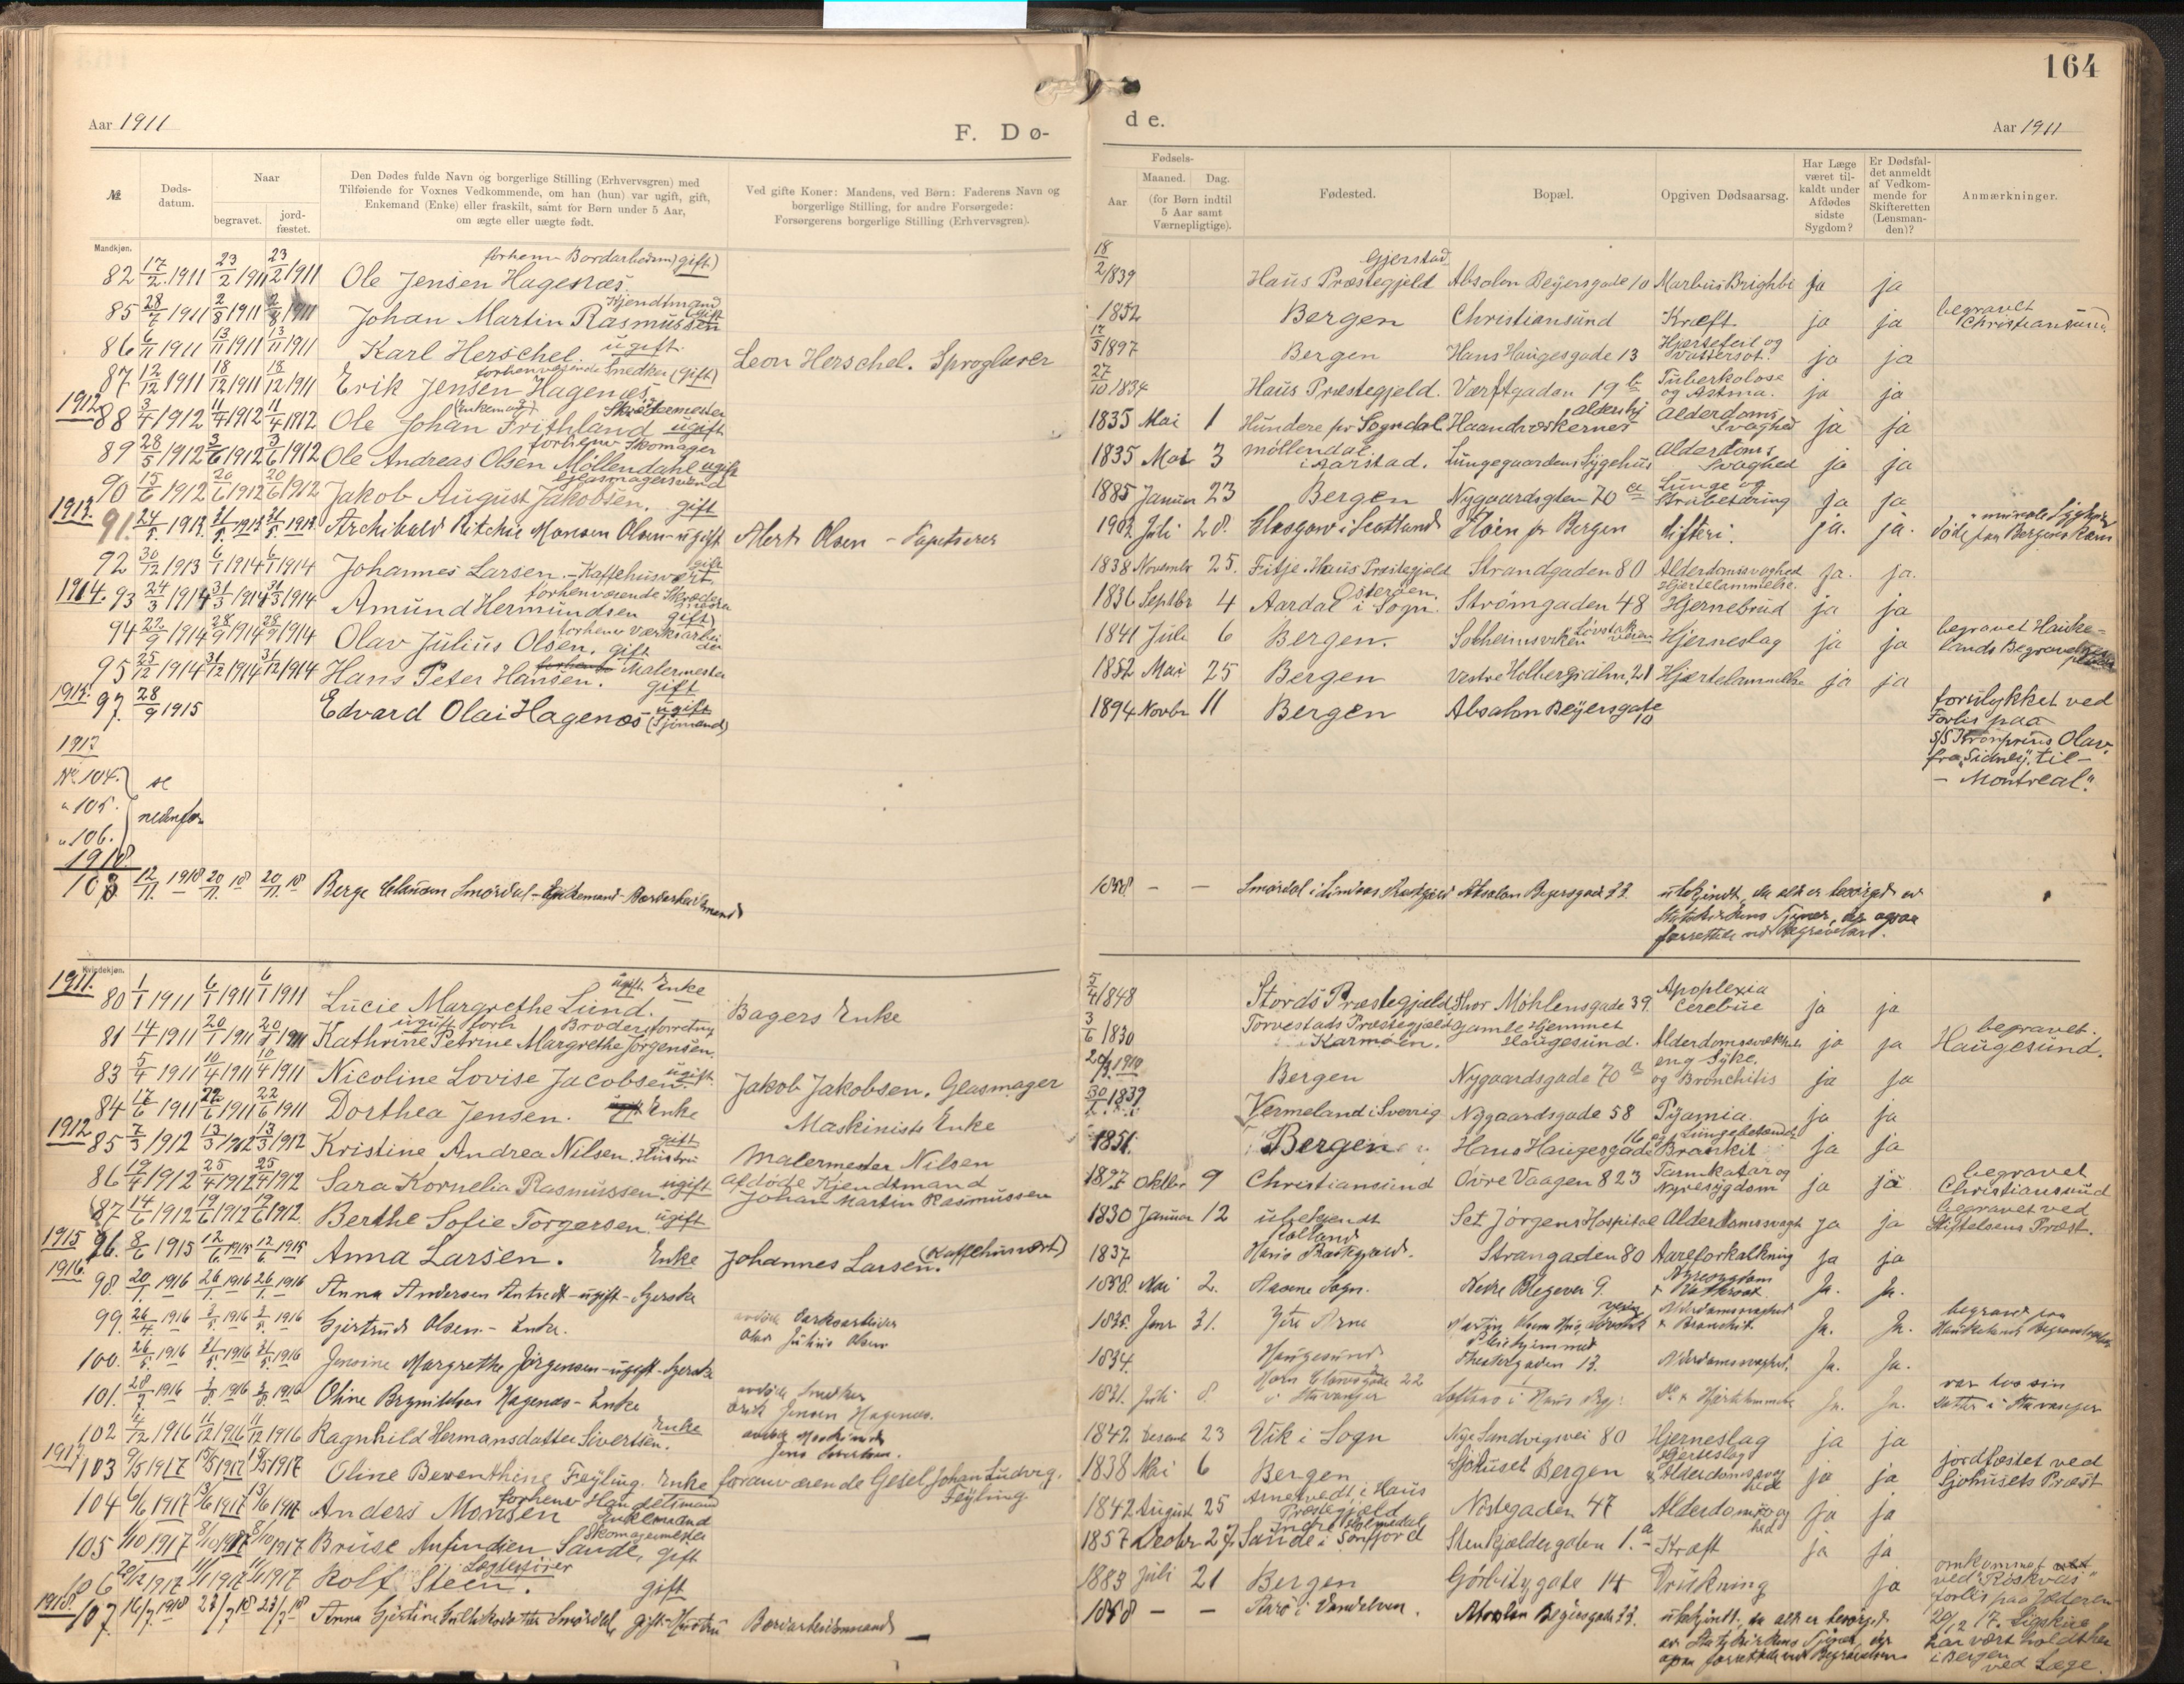 164
Aar 1911
F. Dø-
de.
Aar 1911
№
Døds-
datum.
Naar
begravet.
jord-
fæstet.
Den Dødes fulde Navn og borgerlige Stilling (Erhvervsgren) med
Tilføiende for Voxnes Vedkommende, om han (hun) var ugift, gift,
Enkemand (Enke) eller fraskilt, samt for Børn under 5 Aar,
om ægte eller uægte født.
Ved gifte Koner: Mandens, ved Børn: Faderens Navn og
borgerlige Stilling, for andre Forsørgede:
Forsørgerens borgerlige Stilling (Erhvervsgren).
Fødsels-
Aar
Maaned.
Dag.
(for Børn indtil
5 Aar samt
Værnepligtige).
Fødested.
Bopæl.
Opgiven Dødsaarsag.
Har Læge
været til-
kaldt under
Afdødes
sidste
Sygdom?
Er Dødsfal-
det anmeldt
af Vedkom-
mende for
Skifteretten
(Lensman-
den)?
Anmærkninger.
Mandkjøn.
82 17/2 1911 23/2 1911 23/2 1911 Ole Jensen Hagenæs. gift) 18/2 1839 Haus Præstegjeld Gjerstad Absalon Beyersgade 10 Morbus Brighti ja ja
85 28/7 1911 2/8 1911 2/8 1911 Johan Martin Rasmussen Kjendtmand gift 1852 Bergen Christiansund Kræft ja ja begravet Christiansund
86 6/11 1911 13/11 1911 13/11 1911 Karl Herschel. ugift. Leon Herschel. Sproglærer 17/5 1897 Bergen Hans Haugesgade 13 Hjertefeil og Vattersot. ja ja
87 12/12 1911 18/12 1911 18/12 1911 Erik Jensen Hagenæs. forhenværende Smedker (gift) 27/10 1834 Haus Præstegjeld. Værftgaden 19 b Tuberkolose og Astma. ja ja
1912
88 3/4 1912 11/4 1912 11/4 1912 Ole Johan Frithland (Enkemand) ugift 1835 Mai 1 Hundere pr Sogndal Haandværkernes Aldershj Alderdoms Svaghed ja ja
89 28/5 1912 3/6 1912 3/6 1912 Ole Andreas Olsen Møllendahl forhenv Skomager ugift 1835 Mai 3 Møllendal i Aarstad. Lungegaardens Sygehus Alderdoms Svaghed ja ja
90 15/6 1912 20/6 1912 20/6 1912 Jakob August Jakobsen. Glasmagersvend gift 1885 Januar 23 Bergen Nygaardsgten 70 a Lunge og Strubetæring ja ja
1913.
91. 24/5 1913 31/5 1913 31/5 1913. Archibald Ritchie Monsen Olsen - ugift Alert Olsen - Tapetserer 1902 Juli 28. Glasgow i Scotland Høien pr Bergen difteri. ja. ja.
92 30/12 1913 6/1 1914 6/1 1914 Johannes Larsen. - Kaffehusvært. gift 1838 November 25. Fitje Haus Præstegjeld Osterøen. Strandgaden 80 Alderdomssvaghed Hjertelammelse. ja. ja.
1914.
93 24/3 1914 31/3 1914 31/3 1914 Amund Hermundsen forhenværende Skræder gift) 1836 Septbr 4 Aardal i Sogn. Strømgaden 48 Hjernebrud ja ja
94 22/9 1914 28/9 1914 28/9 1914 Olav Julius Olsen. forhenv Værksarbeider gift 1841 Juli 6 Bergen. Solheimsviken Løvstakveien Hjerneslag ja ja begravet Haukelands Begravelsesplads
95 25/12 1914 31/12 1914 31/12 1914 Hans Peter Hansen. Malermester gift 1852 Mai 25 Bergen Vestre Holbergsalm. 21 Hjertelammelse ja ja
1915.
97. 28/9 1915 Edvard Olai Hagenæs ugift (Sjømand) 1894 Novbr 11 Bergen Absalon Beyersgate 10 forulykket ved
Forlis paa
S/S Kronprins Olav.
fra Sidney, til
- Montreal".
1917
No 104.
" 105.
" 106.
se
nedenfor
1918
108 12/11 1918 20/11 18 20/11 18 Berge Clausen Smørdal - Enkemand - Bordarbeidsmand 1838 - - Smørdal i Lindaas Præstgjeld Absalon Beyersgade 33. ubekjendt, da alt er besørget av
Statskirkens Tjener, der ogsaa
forrettede ved Begravelsen.
Kvindekjøn.
1911.
80 1/1 1911 6/1 1911 6/1 1911 Lucie Margrethe Lund. Enke Bagers Enke 5/4 1848 Stords Præstegjeld Thor Møhlensgade 39 Apoplexia Cerebue ja ja
81 14/1 1911 20/1 1911 20/1 1911 Kathrine Petrine Margrethe Jørgensen. ugift forh Broderiforretning 3/6 1830 Torvestads Præstegjeld Karmøen. Gamle Hjemmet Haugesund. Alderdomssvækkelse ja ja begravet. Haugesund.
83 5/4 1911 10/4 1911 10/4 1911 Nicoline Lovise Jacobsen. ugift Jakob Jakobsen. Glasmager 20/3 1910 Bergen Nygaardsgade 70 a eng Syke. og Bronchitis ja ja
84 17/6 1911 22/6 1911 22/6 1911 Dorthea Jensen. Enke Maskinists Enke 30/2 1839 Vermeland i Sverrig Nygaardsgade 58 Pyæmia. ja ja
1912
85 7/3 1912 13/3 1912 13/3 1912 Kristine Andrea Nilsen. gift Hustru Malermester Nilsen 1851. Bergen Hans Haugesgade 16 Lungebetændelse Bronkit ja ja
86 19/4 1912 25/4 1912 25/4 1912 Sara Kornelia Rasmussen. ugift afdøde Kjendtmand Johan Martin Rasmussen 1897 Oktbr 9 Christiansund Øvre Vaagen 823 Tarmkatar og Nyresygdom ja ja begravet Christiansund
87 14/6 1912 19/6 1912 19/6 1912. Berthe Sofie Torgersen. ugift 1830 Januar 12 ubekjendt Set Jørgens Hospital Alderdomssvagt ja ja begravet ved Stiftelsens Præst.
1915
96. 8/6 1915 12/6 1915 12/6 1915 Anna Larsen. Enke Johannes Larsen. (Kaffehusvært) 1837. Haus Præstegjeld. Strangaden 80 Aareforkalkning ja ja
1916
98. 20/1 1916 26/1 1916 26/1 1916 Anna Andersen - ugift - Syerske 1838. Mai 2. Sogn. Nedre Blegevei 9. Nyresygdom + Vattersot Ja. Ja.
99. 26/4 1916 2/5 1916 2/5 1916 Gjertrud Olsen. - Enke. avdøde Værksarbeider Olav Julius Olsen 1835. Janr 31. Ytre Arne Alderdomssvaghed + Bronchit. Ja. Ja. begravet paa Haukelands Begravelsesplads
100. 26/5 1916 31/5 1916 31/5 1916 Jensine Margrethe Jørgensen - ugift - Syerske 1834. Haugesund Pleiehjemmet Theatergaden 13. Alderdomssvaghed. Ja. Ja.
101. 28/7 1916 2/8 1916 2/8 1916 Oline Brynildsen Hagenæs - Enke avdøde Smedker Erik Jensen Hagenæs. 1831. Juli 8. Hans Clausøgade 22 i Stavanger Hjertelammelse Ja. Ja. var hos sin Datter i Stavanger
102 4/12 1916 11/12 1916 11/12 1916 Ragnhild Hermansdatter Sivertsen. Enke 1842. Decemb 23 Vik i Sogn Nye Sandvigsvei 80 Hjerneslag ja ja
1917.
103 9/5 1917 15/5 1917 15/5 1917 Oline Berenthine Feyling. Enke foranværende Gesel Johan Ludvig Feyling 1838 Mai 6 Bergen Sjøhuset Bergen Hjerteslag & Alderdomssvaghed ja ja jordfæstet ved Sjøhusets Præst
104 6/6 1917 13/6 1917 13/6 1917 Anders Monsen forhenv Handelsmand Enkemand 1842 August 25 Arnetvedt i Haus Præstegjeld Nøstegaden 47 Alderdomssvaghed ja ja
105 1/10 1917 8/10 1917 8/10 1917 Bruse Anfindsen Sande, Skomagermester gift 1857 Decbr 27. Sande i Søndfjord Indre Holmedal Stenkjældergaden 1.a Kræft ja ja
106 20/12 1917 11/1 1917 11/1 1917 Rolf Steen. gift 1883 Juli 21 Bergen Gørbitzgate 14 Druskning ja omkommet
ved "Røskva's"
forlis paa Jæderen
20/12 17. Ligskue
har vært holdt her
i Bergen
ved Læge.
1918.
107. 16/7 1918 23/7 18 23/7 18 Anna Gjertine Smørdal, gift - Hustru Bordarbeidsmand 1858 - - Absalon Beyersgade 33. ubekjendt, da alt er besørget
av Statskirkens Tjener, der
ogsaa forrettede ved Begravelsen